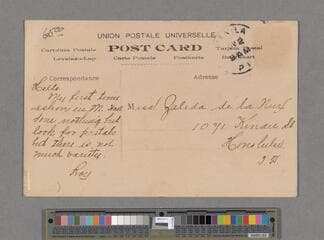 UNION POSTALE UNIVERSELLE
Cartolina Postale POST CARD Tarjeta Postal
Levelezo-Lap Carte Postale Postkarte
Correspondance Adresse
MANILA
P.I.
Hello
My first time
ashore in M. Have
done nothing but
look for postals
but there is not
much variety.
Roy
Miss de la Nux
1071 Kinau St
Honolulu
T.H.